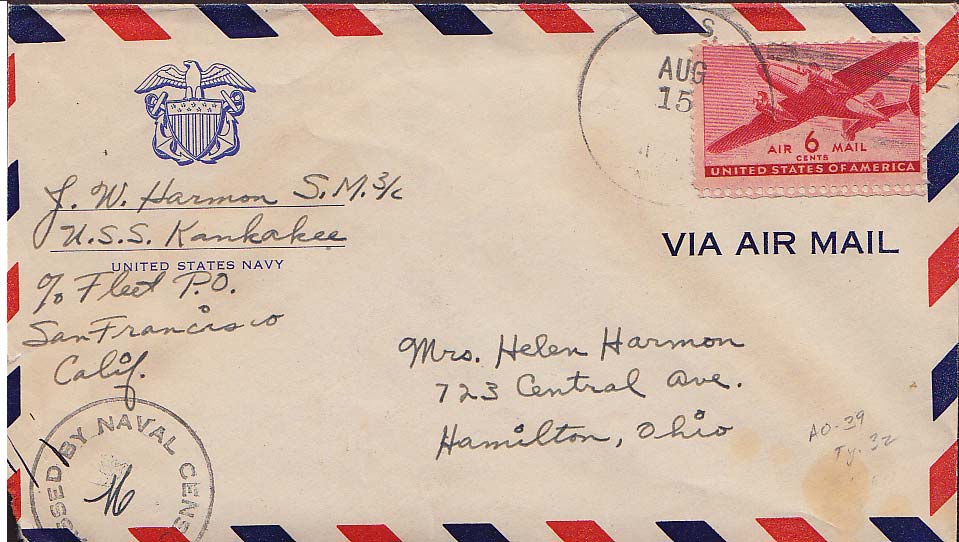 J. W. Harmon S.M. 3/c
U.S.S. Kankakee
UNITED STATES NAVY
c/o Fleet P.O.
San Francisco
Calif.
S.
AUG
15
AIR 6 MAIL
CENTS
UNITED STATES OF AMERICA
VIA AIR MAIL
Mrs. Helen Harmon
723 Central Ave.
Hamilton, Ohio
AO-39
Ty. 32
SSED BY NAVAL CENS